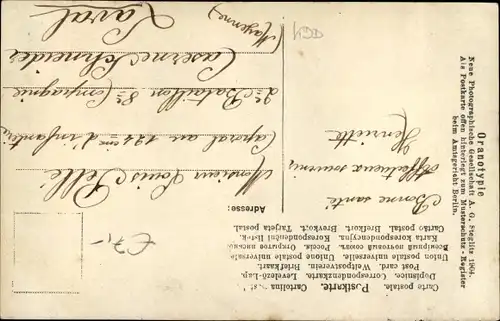 Carte postale.
Postkarte. Cartolina
Dopisnice. Correspondenzkarte. Levelező-Lap.
Post card. Weltpostverein. Briefkaart.
Union postale universelle. Unione postale universale.
Karta korespondencyjna. Korespondenční lístek.
Cartão postal. Brefkort. Brevkort. Tarjeta postal.
Adresse:
Bonne santé
Affectueux souvenir
Henriette
Monsieur Louis Pellé
Caporal au 124ème d'infanterie
2e Bataillon 8e Compagnie
Caserne Schneider
Laval
(Mayenne)
Oranotypie
Neue Photographische Gesellschaft A. G. Steglitz 1904.
Als Postkarte offen hinterlegt zum Musterschutz-Register
beim Amtsgericht Berlin.
€7,-